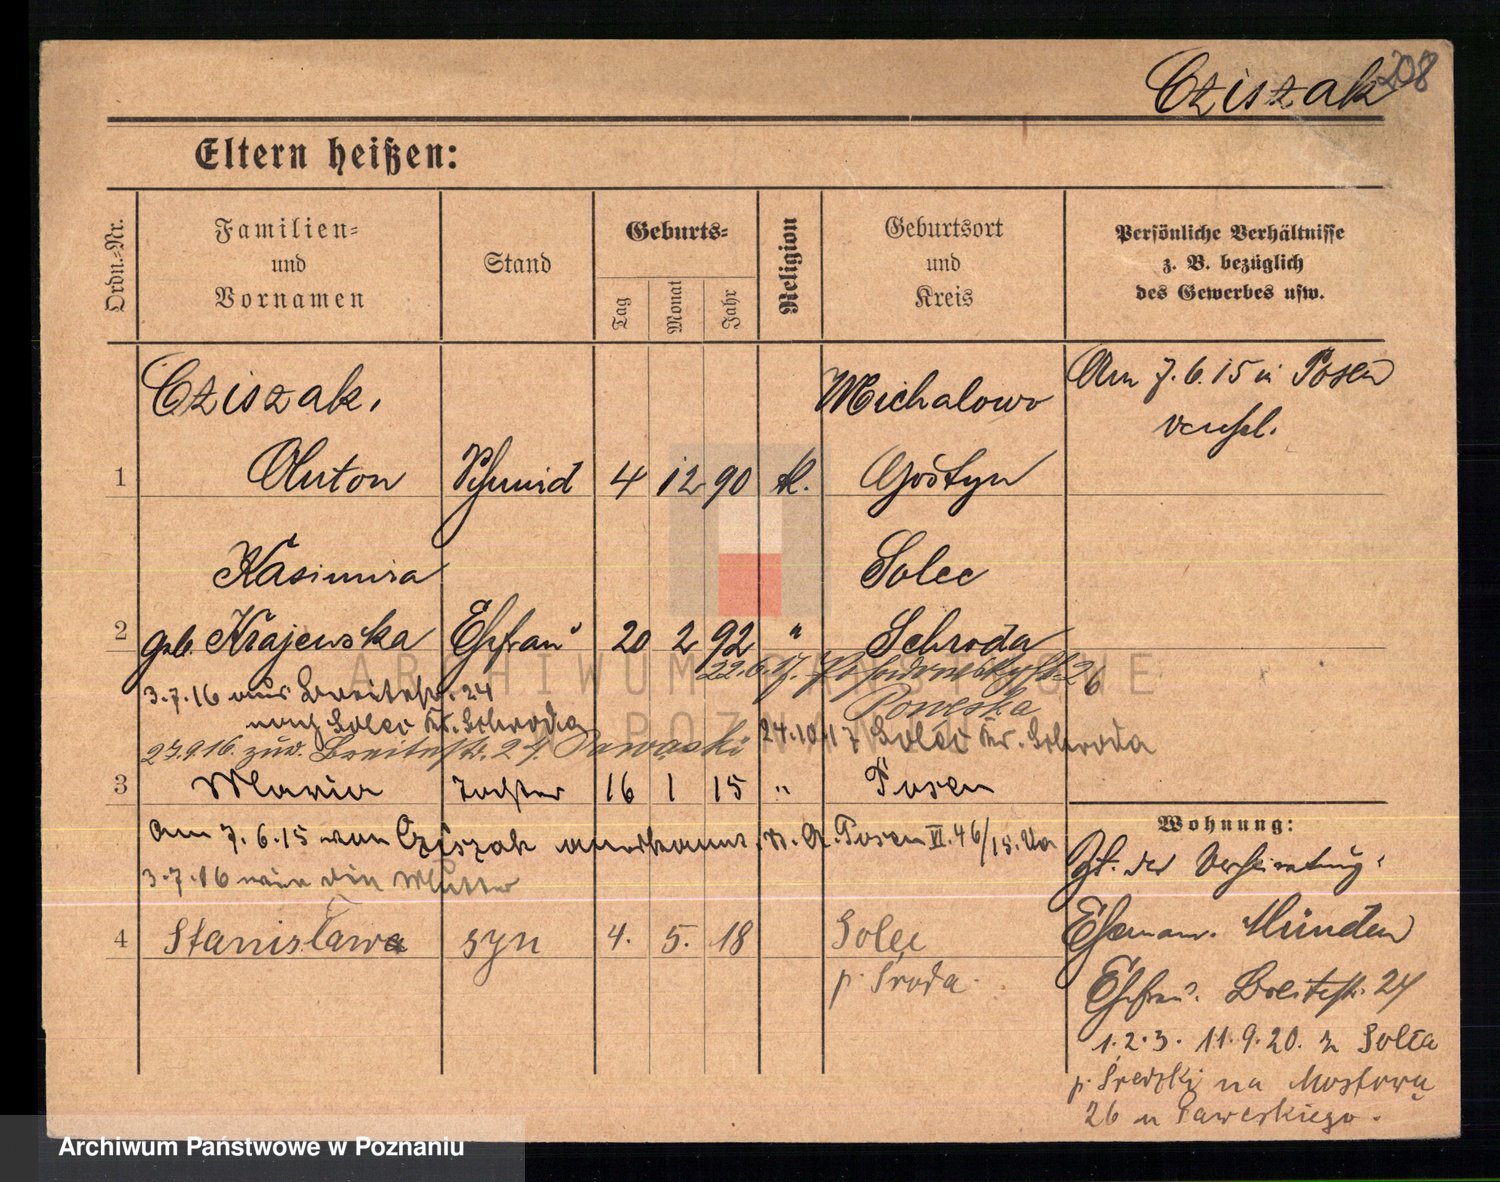 Cziszak 208
Eltern heißen:
Ordn.-Nr.
Familien-
und
Vornamen
Stand
Geburts-
Tag
Monat
Jahr
Religion
Geburtsort
und
Kreis
Persönliche Verhältnisse
z. B. bezüglich
des Gewerbes usw.
Cziszak,
Michalowo
Am 7.6.15 in Posen
verehel.
1 Anton Schmied 4 12 90 k. Gostyn
Kasimira
Solec
2 geb. Krajewska Ehefrau 20 2 92 " Schroda
22.6.17. 26
3.7.16 aus Breitestr. 24
nach Solec Kr. Schroda
24.10.17 Solec Kr. Schroda
27.9.16. zur. Breitestr. 24.
3 Maria Tochter 16 1 15 " Posen
Am 7.6.15 von Cziszak anerkannt. Posen VI. 46/15.
3.7.16 wie die Mutter
4 Stanisława syn 4. 5. 18 Solec
p. Środa
Wohnung:
Zt. der Verheiratung:
Ehemann. Münden
Ehefrau. Breitestr. 24
1.2.3. 11.9.20. z Solca
p. Średzki na Mostową
26 u Pawerskiego.
ARCHIWUM PAŃSTWOWE
W POZNANIU
Archiwum Państwowe w Poznaniu